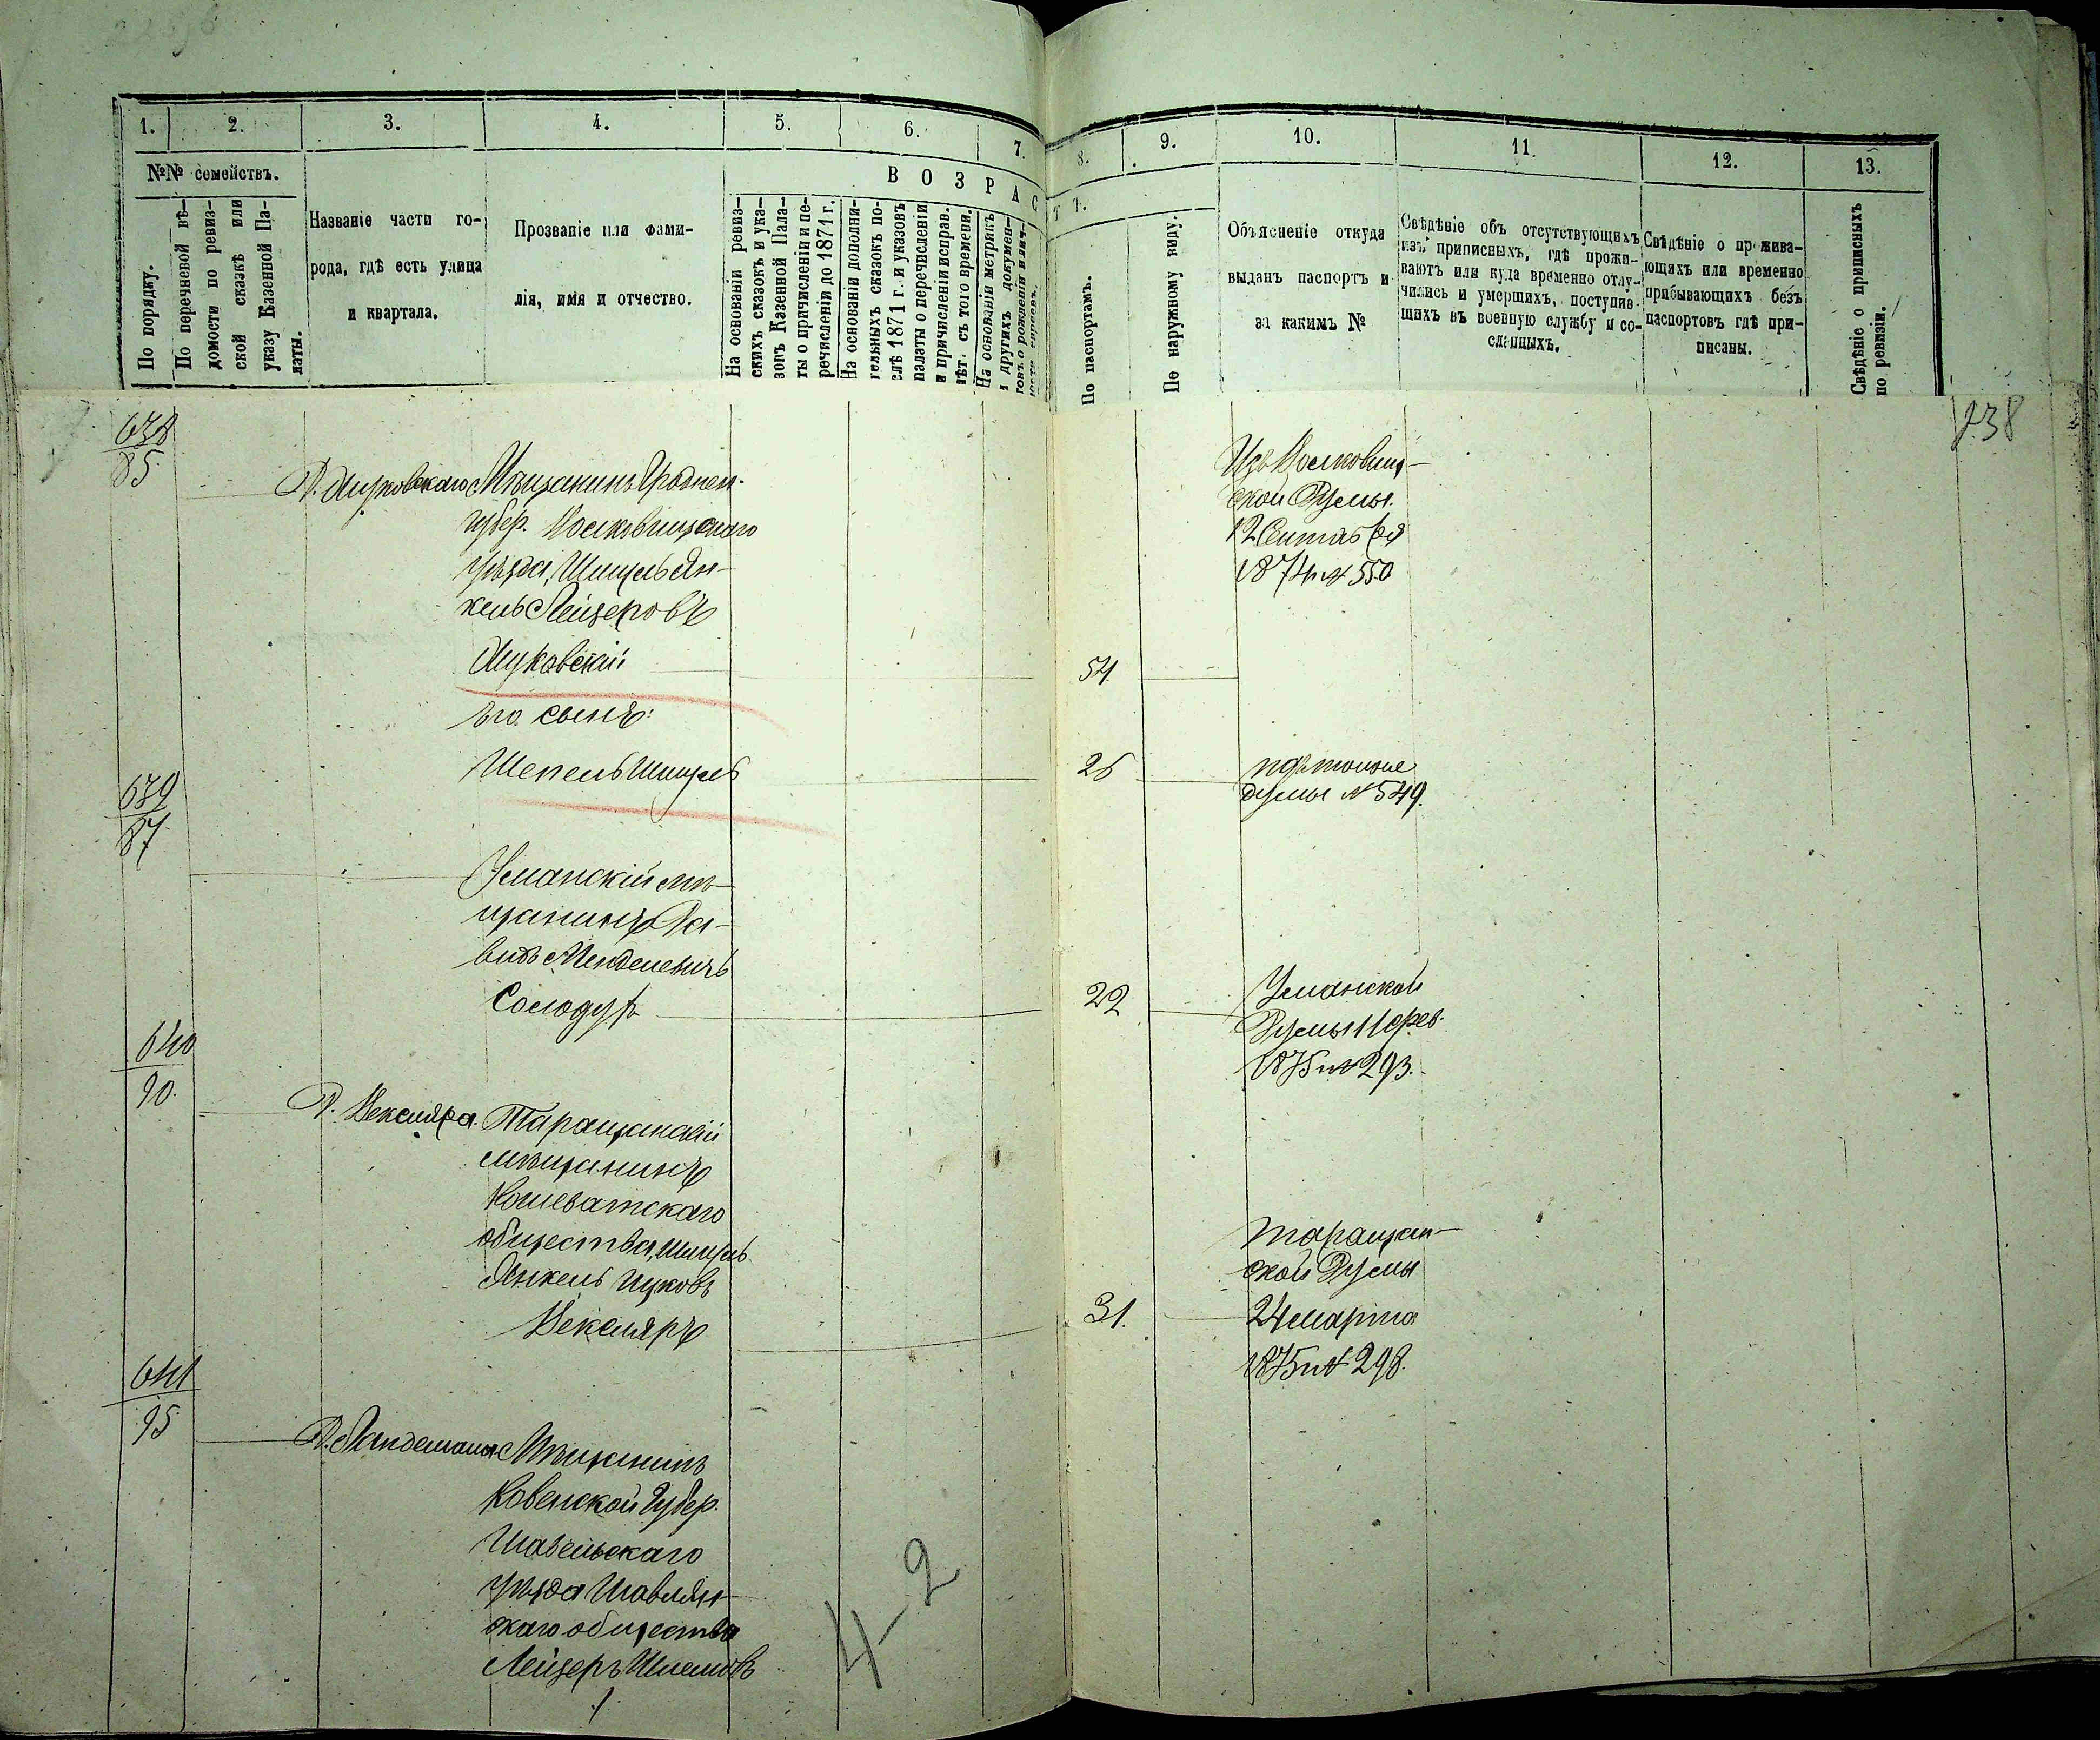 1. 2. 3. 4. 5. 6. 7. 8. 9. 10. 11. 12. 13.
№№ семействъ.
По порядку.
По перечневой вѣ-
домости по ревиз-
ской сказкѣ или
указу Казенной Па-
латы.
Названіе части го-
рода, гдѣ есть улица
и квартала.
Прозваніе или фами-
лія, имя и отчество.
ВОЗРАСТЪ.
На основаніи ревиз-
скихъ сказокъ и ука-
зовъ Казенной Пала-
ты о причисленіи и пе-
речисленіи до 1871 г.
На основаніи дополни-
тельныхъ сказокъ по-
слѣ 1871 г. и указовъ
палаты о перечисленіи
и причисленіи исправ.
лѣт. съ того времени.
На основаніи метрикъ
и другихъ докумен-
товъ о рожденіи
По паспортамъ.
По наружному виду.
Объясненіе откуда
выданъ паспортъ и
за какимъ №
Свѣдѣніе объ отсутствующихъ
изъ приписныхъ, гдѣ прожи-
ваютъ или куда временно отлу-
чились и умершихъ, поступив-
шихъ въ военную службу и со-
сланныхъ.
Свѣдѣніе о прожива-
ющихъ или временно
прибывающихъ безъ
паспортовъ гдѣ при-
писаны.
Свѣдѣніе о приписныхъ
по ревизіи.
638
85
Мѣщанинъ Гроднен.
губер. Волковищскаго
уѣзда, Шмуль Ян-
кель Лейзеровъ
54
Изъ Волковищ-
ской Думы
12 Сентября
1874 № 550
его сынъ:
Шепель Шмуль
26
той же
думы № 549.
639
87
Уманскій мѣ-
щанинъ Да-
видъ Менделевичъ
Солодуръ
22
Уманской
Думы 11 фев.
1875 № 293.
640
90.
Д. Векслера.
Таращанскій
мѣщанинъ
Кошеватскаго
общества, Шмуль
Янкель Ицковъ
Векслеръ
31.
Таращан-
ской Думы
24 марта
1875 № 298.
641
95
Мѣщанинъ
Ковенской Губер.
Шавельскаго
уѣзда Шавлян-
скаго общества
Лейзеръ Шлемовъ
4-2
238